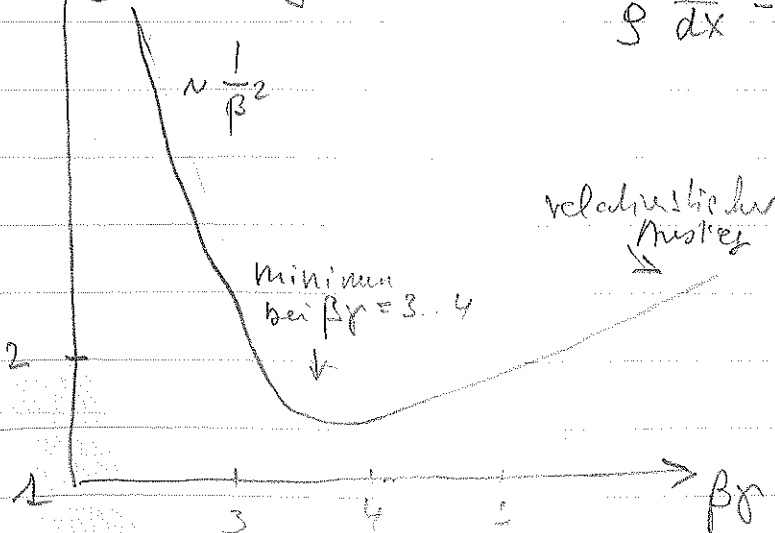 ρ dx
~ 1/β²
relativistischer
Anstieg
Minimum
bei βγ = 3..4
2
1
3 4
βγ